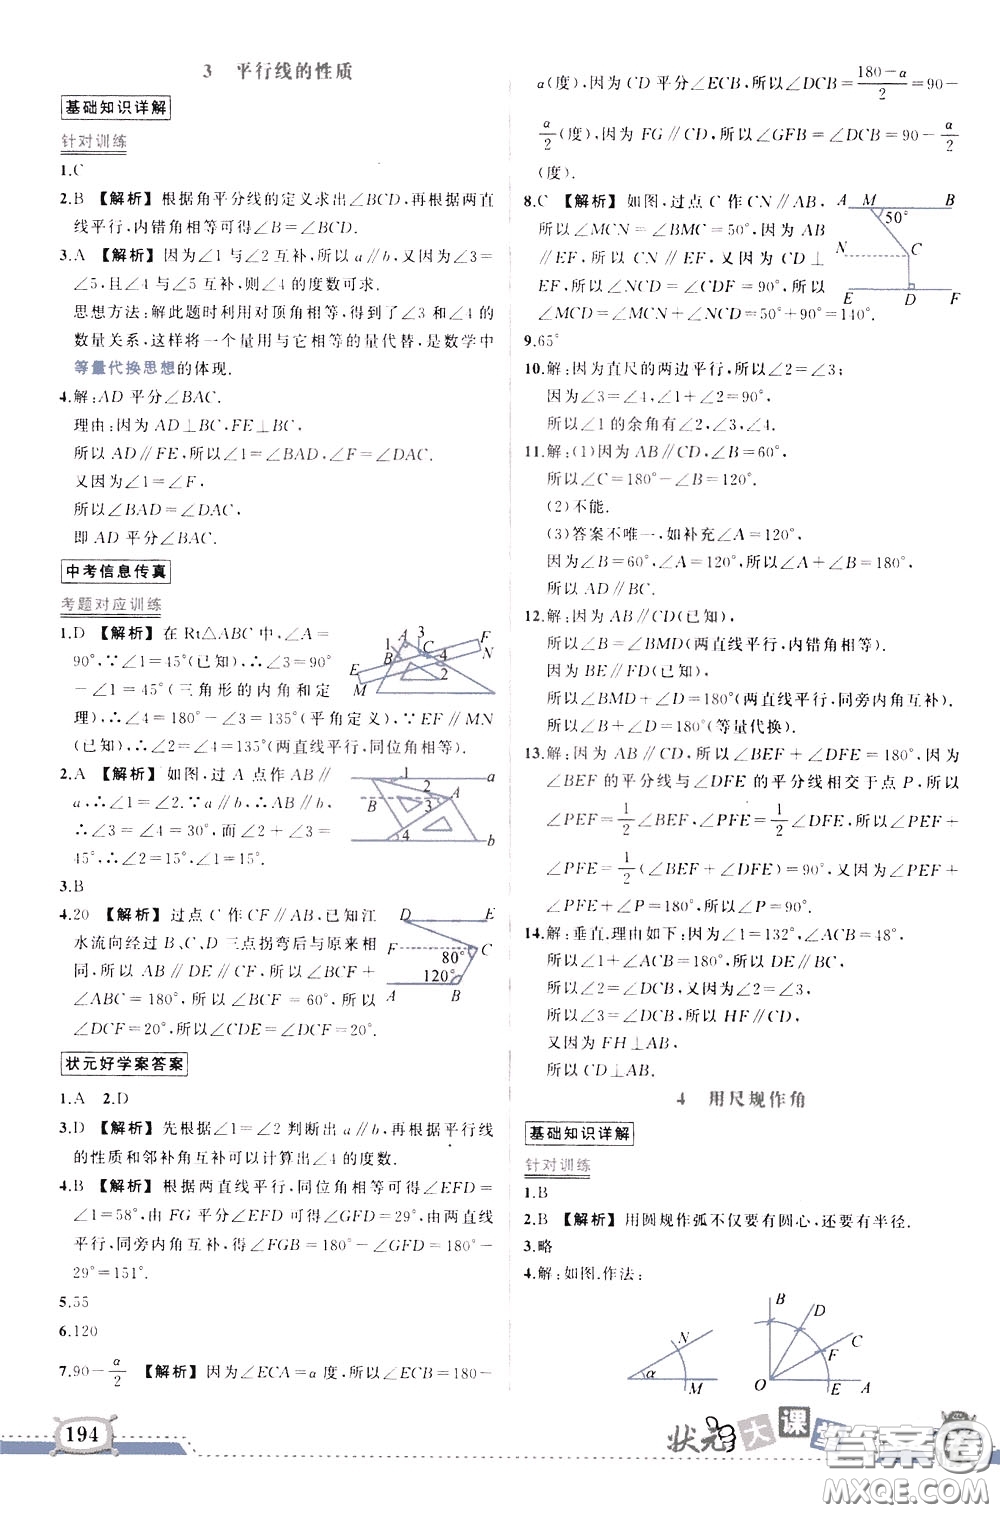 3 平行线的性质
基础知识详解
针对训练
1.C
2.B 【解析】根据角平分线的定义求出∠BCD,再根据两直
线平行,内错角相等可得∠B=∠BCD.
3.A 【解析】因为∠1与∠2互补,所以a∥b,又因为∠3=
∠5,且∠4与∠5互补,则∠4的度数可求.
思想方法:解此题时利用对顶角相等,得到了∠3和∠4的
数量关系,这样将一个量用与它相等的量代替,是数学中
等量代换思想的体现.
4.解:AD平分∠BAC.
理由:因为AD⊥BC,FE⊥BC,
所以AD∥FE,所以∠1=∠BAD,∠F=∠DAC.
又因为∠1=∠F,
所以∠BAD=∠DAC,
即AD平分∠BAC.
中考信息传真
考题对应训练
1.D 【解析】在Rt△ABC中,∠A=
90°,∵∠1=45°(已知),∴∠3=90°
-∠1=45°(三角形的内角和定
理),∴∠4=180°-∠3=135°(平角定义),∵EF∥MN
(已知),∴∠2=∠4=135°(两直线平行,同位角相等).
A 3 F
1 C N
B 4
E 2
M
2.A 【解析】如图,过A点作AB∥
a,∴∠1=∠2.∵a∥b,∴AB∥b,
∴∠3=∠4=30°,而∠2+∠3=
45°,∴∠2=15°,∴∠1=15°.
1 a
2 A
B 3
4 b
3.B
4.20 【解析】过点C作CF∥AB,已知江
水流向经过B、C、D三点拐弯后与原来相
同,所以AB∥DE∥CF,所以∠BCF+
∠ABC=180°,所以∠BCF=60°,所以
∠DCF=20°,所以∠CDE=∠DCF=20°.
D E
F C
80°
120°
A B
状元好学案答案
1.A 2.D
3.D 【解析】先根据∠1=∠2判断出a∥b,再根据平行线
的性质和邻补角互补可以计算出∠4的度数.
4.B 【解析】根据两直线平行,同位角相等可得∠EFD=
∠1=58°,由FG平分∠EFD可得∠GFD=29°,由两直线
平行,同旁内角互补,得∠FGB=180°-∠GFD=180°-
29°=151°.
5.55
6.120
7.90-α/2 【解析】因为∠ECA=α度,所以∠ECB=180-
194
α(度),因为CD平分∠ECB,所以∠DCB=(180-α)/2=90-
α/2(度),因为FG∥CD,所以∠GFB=∠DCB=90-α/2
(度).
8.C 【解析】如图,过点C作CN∥AB,
所以∠MCN=∠BMC=50°,因为AB
∥EF,所以CN∥EF,又因为CD⊥
EF,所以∠NCD=∠CDF=90°,所以
∠MCD=∠MCN+∠NCD=50°+90°=140°.
A M B
50°
N C
E D F
9.65°
10.解:因为直尺的两边平行,所以∠2=∠3;
因为∠3=∠4,∠1+∠2=90°,
所以∠1的余角有∠2,∠3,∠4.
11.解:(1)因为AB∥CD,∠B=60°,
所以∠C=180°-∠B=120°.
(2)不能.
(3)答案不唯一,如补充∠A=120°,
因为∠B=60°,∠A=120°,所以∠A+∠B=180°,
所以AD∥BC.
12.解:因为AB∥CD(已知),
所以∠B=∠BMD(两直线平行,内错角相等).
因为BE∥FD(已知),
所以∠BMD+∠D=180°(两直线平行,同旁内角互补).
所以∠B+∠D=180°(等量代换).
13.解:因为AB∥CD,所以∠BEF+∠DFE=180°,因为
∠BEF的平分线与∠DFE的平分线相交于点P,所以
∠PEF=1/2∠BEF,∠PFE=1/2∠DFE,所以∠PEF+
∠PFE=1/2(∠BEF+∠DFE)=90°,又因为∠PEF+
∠PFE+∠P=180°,所以∠P=90°.
14.解:垂直.理由如下:因为∠1=132°,∠ACB=48°,
所以∠1+∠ACB=180°,所以DE∥BC,
所以∠2=∠DCB,又因为∠2=∠3,
所以∠3=∠DCB,所以HF∥CD,
又因为FH⊥AB,
所以CD⊥AB.
4 用尺规作角
基础知识详解
针对训练
1.B
2.B 【解析】用圆规作弧不仅要有圆心,还要有半径.
3.略
4.解:如图.作法:
B D
N C
F
α
M O E A
状元大课堂
答案圈
MXQE.COM